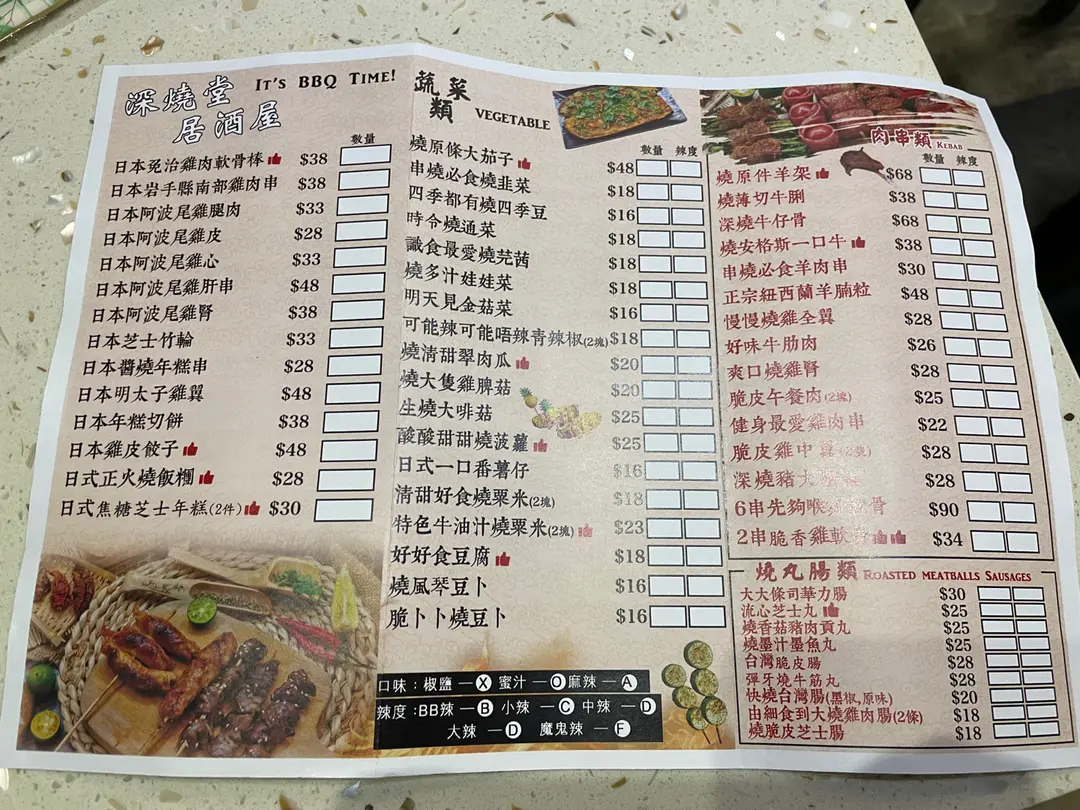 深燒堂 IT'S BBQ TIME!
居酒屋
數量
日本免治雞肉軟骨棒 $38
日本岩手縣南部雞肉串 $38
日本阿波尾雞腿肉 $33
日本阿波尾雞皮 $28
日本阿波尾雞心 $33
日本阿波尾雞肝串 $48
日本阿波尾雞腎 $38
日本芝士竹輪 $33
日本醬燒年糕串 $28
日本明太子雞翼 $48
日本年糕切餅 $38
日本雞皮餃子 $48
日式正火燒飯糰 $28
日式焦糖芝士年糕(2件) $30
蔬菜類 VEGETABLE
數量 辣度
燒原條大茄子 $48
串燒必食燒韭菜 $18
四季都有燒四季豆 $16
時令燒通菜 $18
識食最愛燒芫茜 $18
燒多汁娃娃菜 $18
明天見金菇菜 $16
可能辣可能唔辣青辣椒(2塊) $18
燒清甜翠肉瓜 $20
燒大隻雞脾菇 $20
生燒大啡菇 $25
酸酸甜甜燒菠蘿 $25
日式一口番薯仔 $16
清甜好食燒粟米(2塊) $18
特色牛油汁燒粟米(2塊) $23
好好食豆腐 $18
燒風琴豆卜 $16
脆卜卜燒豆卜 $16
口味：椒鹽 — X 蜜汁 — O 麻辣 — A
辣度：BB辣 — B 小辣 — C 中辣 — D
大辣 — D 魔鬼辣 — F
肉串類 KEBAB
數量 辣度
燒原件羊架 $68
燒薄切牛脷 $38
深燒牛仔骨 $68
燒安格斯一口牛 $38
串燒必食羊肉串 $30
正宗紐西蘭羊腩粒 $48
慢慢燒雞全翼 $28
好味牛肋肉 $26
爽口燒雞腎 $28
脆皮午餐肉(2塊) $25
健身最愛雞肉串 $22
脆皮雞中 $28
深燒豬大 $28
6串先夠喉 骨 $90
2串脆香雞軟骨 $34
燒丸腸類 ROASTED MEATBALLS SAUSAGES
大大條司華力腸 $30
流心芝士丸 $25
燒香菇豬肉貢丸 $25
燒墨汁墨魚丸 $25
台灣脆皮腸 $28
彈牙燒牛筋丸 $28
快燒台灣腸(黑椒,原味) $20
由細食到大燒雞肉腸(2條) $18
燒脆皮芝士腸 $18